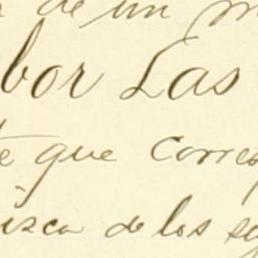 de un m
bor Las
te que corres
isca de los se